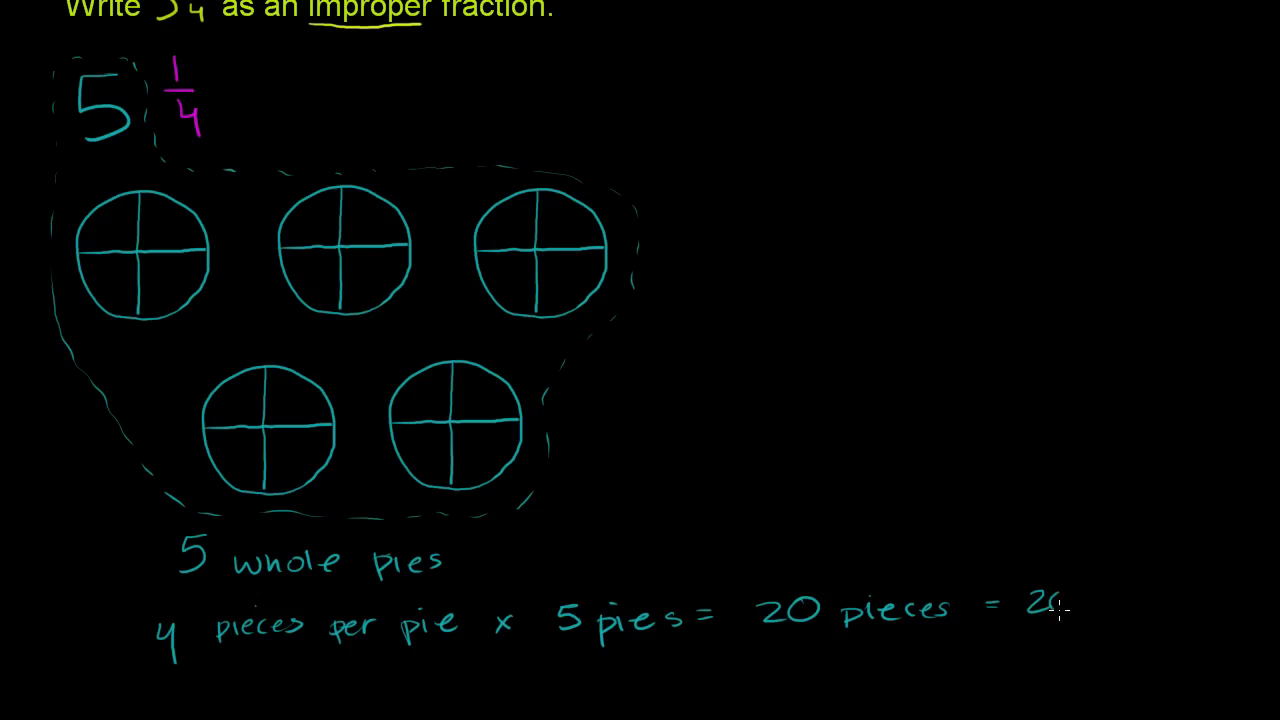 Write 5 1/4 as an improper fraction.
5 1/4
5 whole pies
4 pieces per pie x 5 pies = 20 pieces = 20